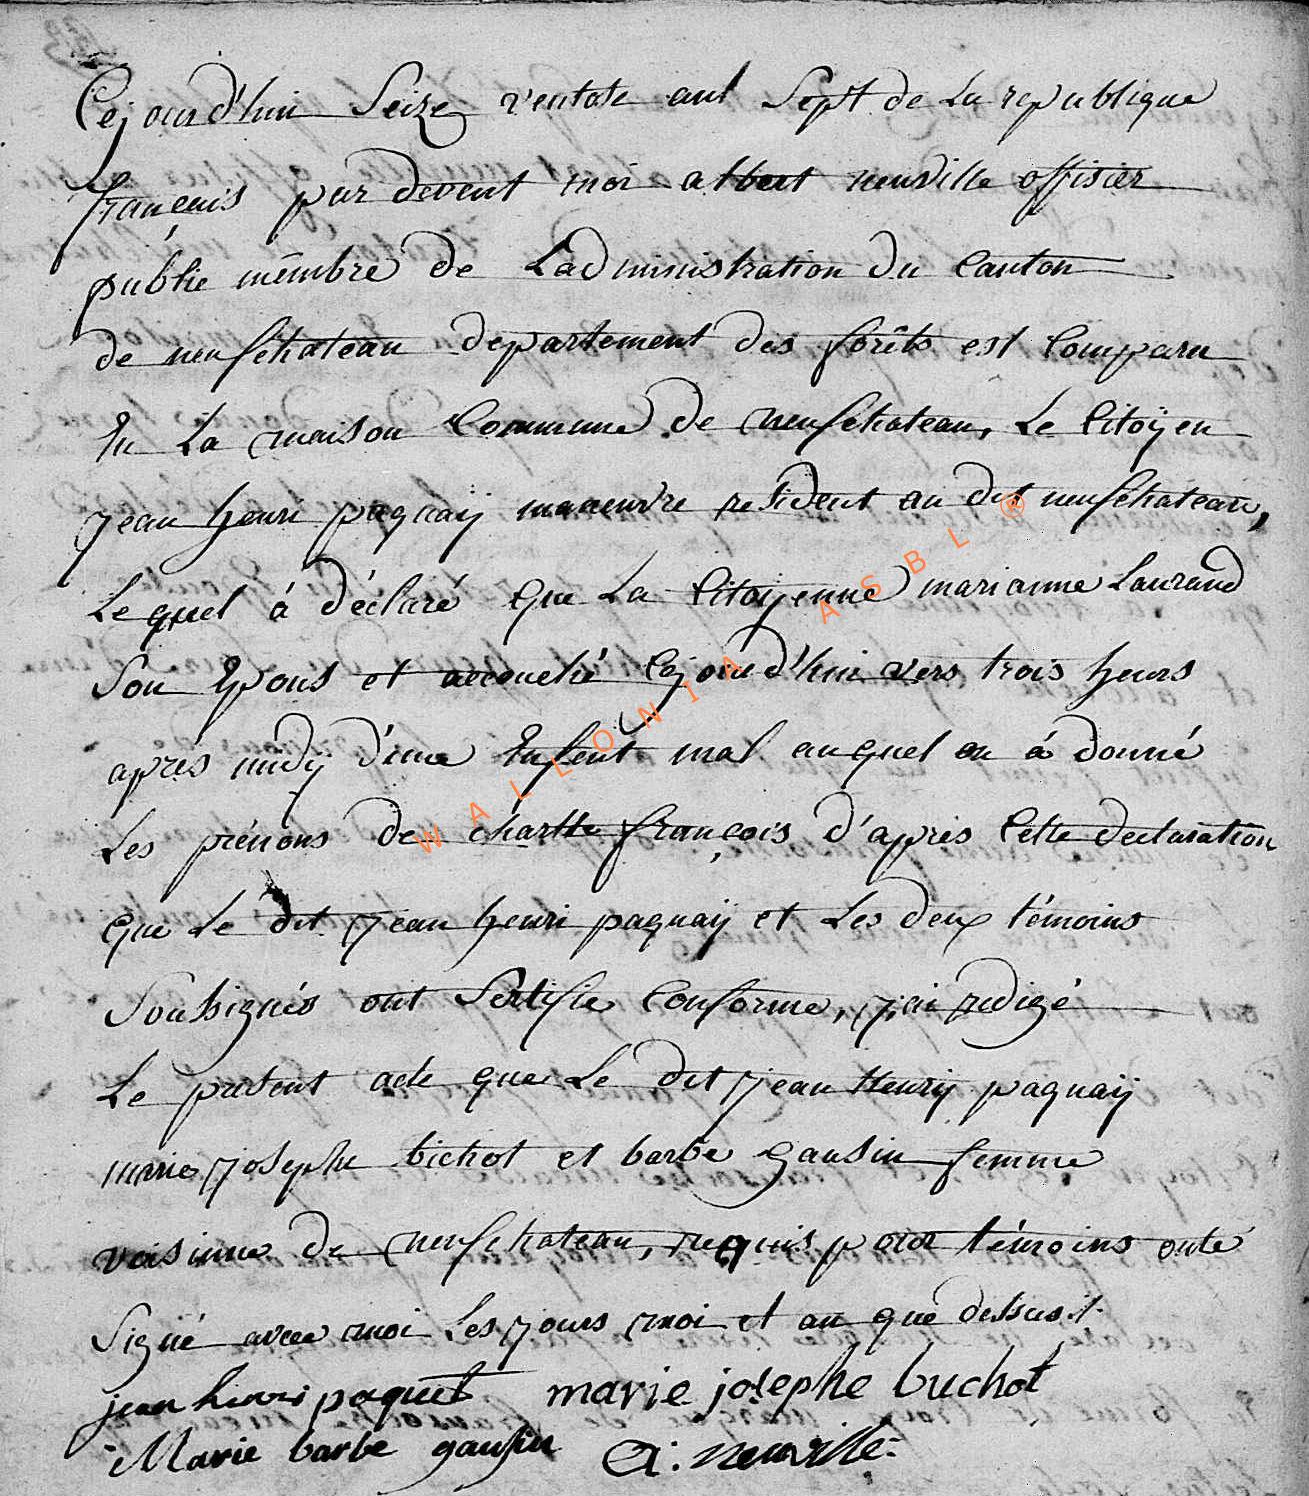 Cejourd'hui Seize ventote ant Sept de La republique
français par devent moi albert neuville offisier
publie mêmbre de Ladministration du Canton
de neufchateau departement des forêts est Comparu
En La maison Commune de neufchateau, Le Citoÿen
jean henri paquaÿ maneuvre resident au dit neufchateau,
Le quel á déclaré que La Citoyenne marianne Laurand
Son Epous et accouché Cejourd'hui vers trois heurs
apres midÿ d'une Enfent mal auquel on á donné
Les prénons de charlle françois d'aprés Cette declaration
que Le dit jean henri paquaÿ et Les deux témoins
Soussignés ont Sertifie Conforme, j'ai redigé
Le present acte que Le dit jean Henrÿ paquaÿ
marie josephe bichot et barbe gausin femme
voisinne de neufchateau, requis pour témoins onte
Signé avece moi Les jours moi et an que dessus
jean henri paquet marie josephe buchot
Marie barbe gausin a: neuville
WALLONIA ASBL ®